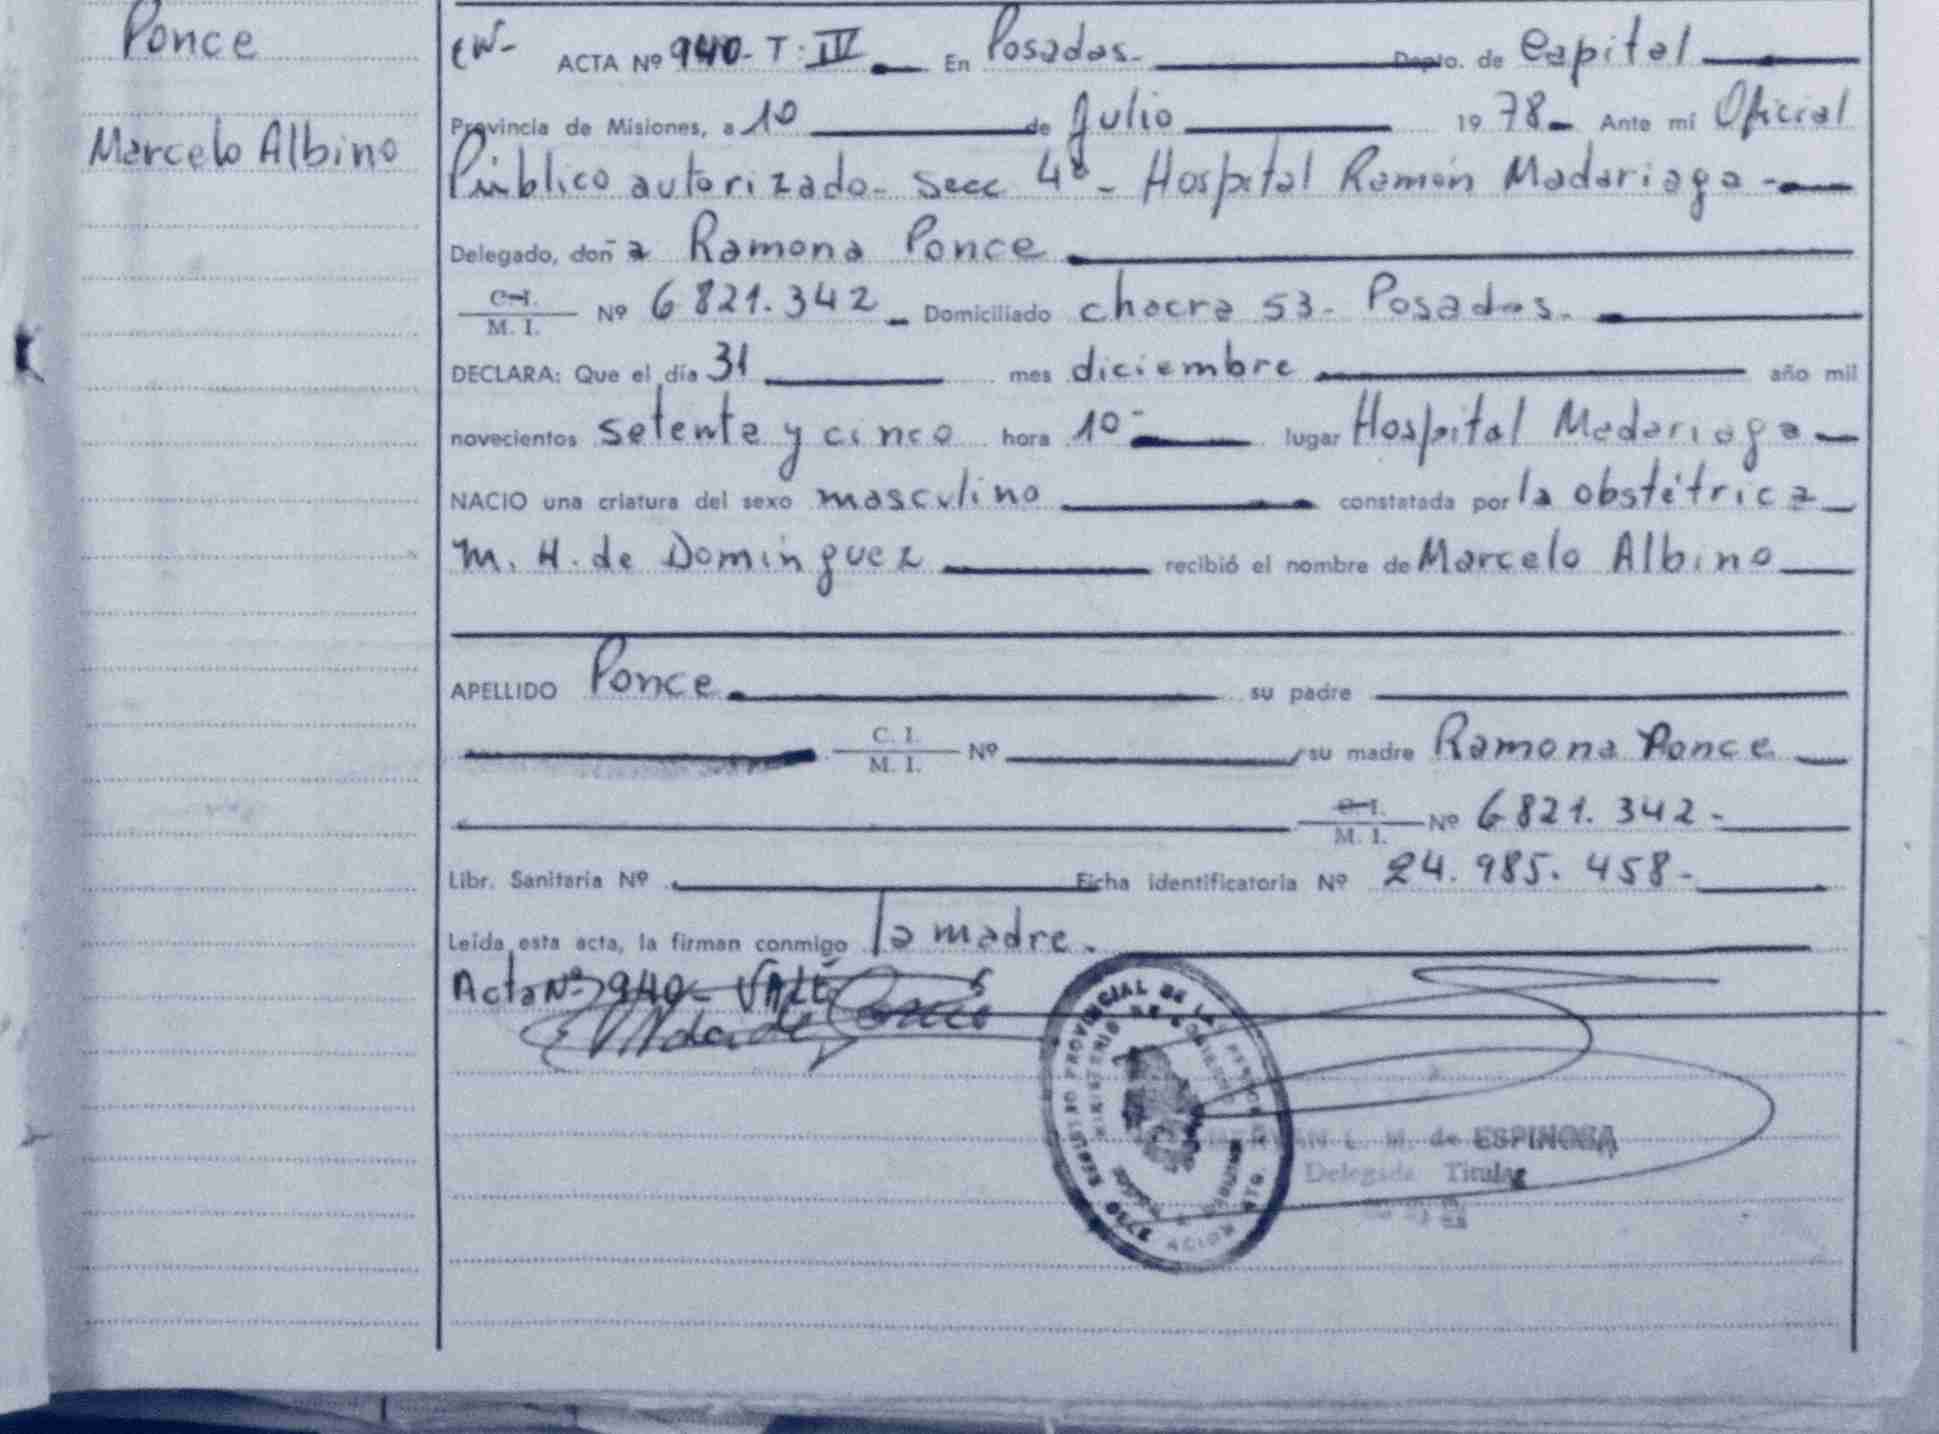 Ponce
Marcelo Albino
ACTA Nº 940- T: IV - En Posadas - Depto. de Capital
Provincia de Misiones, a 10 de Julio 1978 - Ante mí Oficial
Público autorizado - Secc 4ª - Hospital Ramón Madariaga -
Delegado, doña Ramona Ponce
C. I. / M. I. Nº 6821.342 - Domiciliado chacra 53 - Posadas -
DECLARA: Que el día 31 mes diciembre año mil
novecientos setenta y cinco hora 10- lugar Hospital Madariaga
NACIO una criatura del sexo masculino constatada por la obstétrica
M. H. de Dominguez recibió el nombre de Marcelo Albino
APELLIDO Ponce su padre
C. I. / M. I. Nº su madre Ramona Ponce
C. I. / M. I. Nº 6821.342-
Libr. Sanitaria Nº Ficha identificatoria Nº 24.985.458-
Leída esta acta, la firman conmigo la madre.
Acta Nº 940- VALE
REGISTRO PROVINCIAL DE LA
MINISTERIO DE GOBIERNO
L. M. de ESPINOSA
Delegada Titular